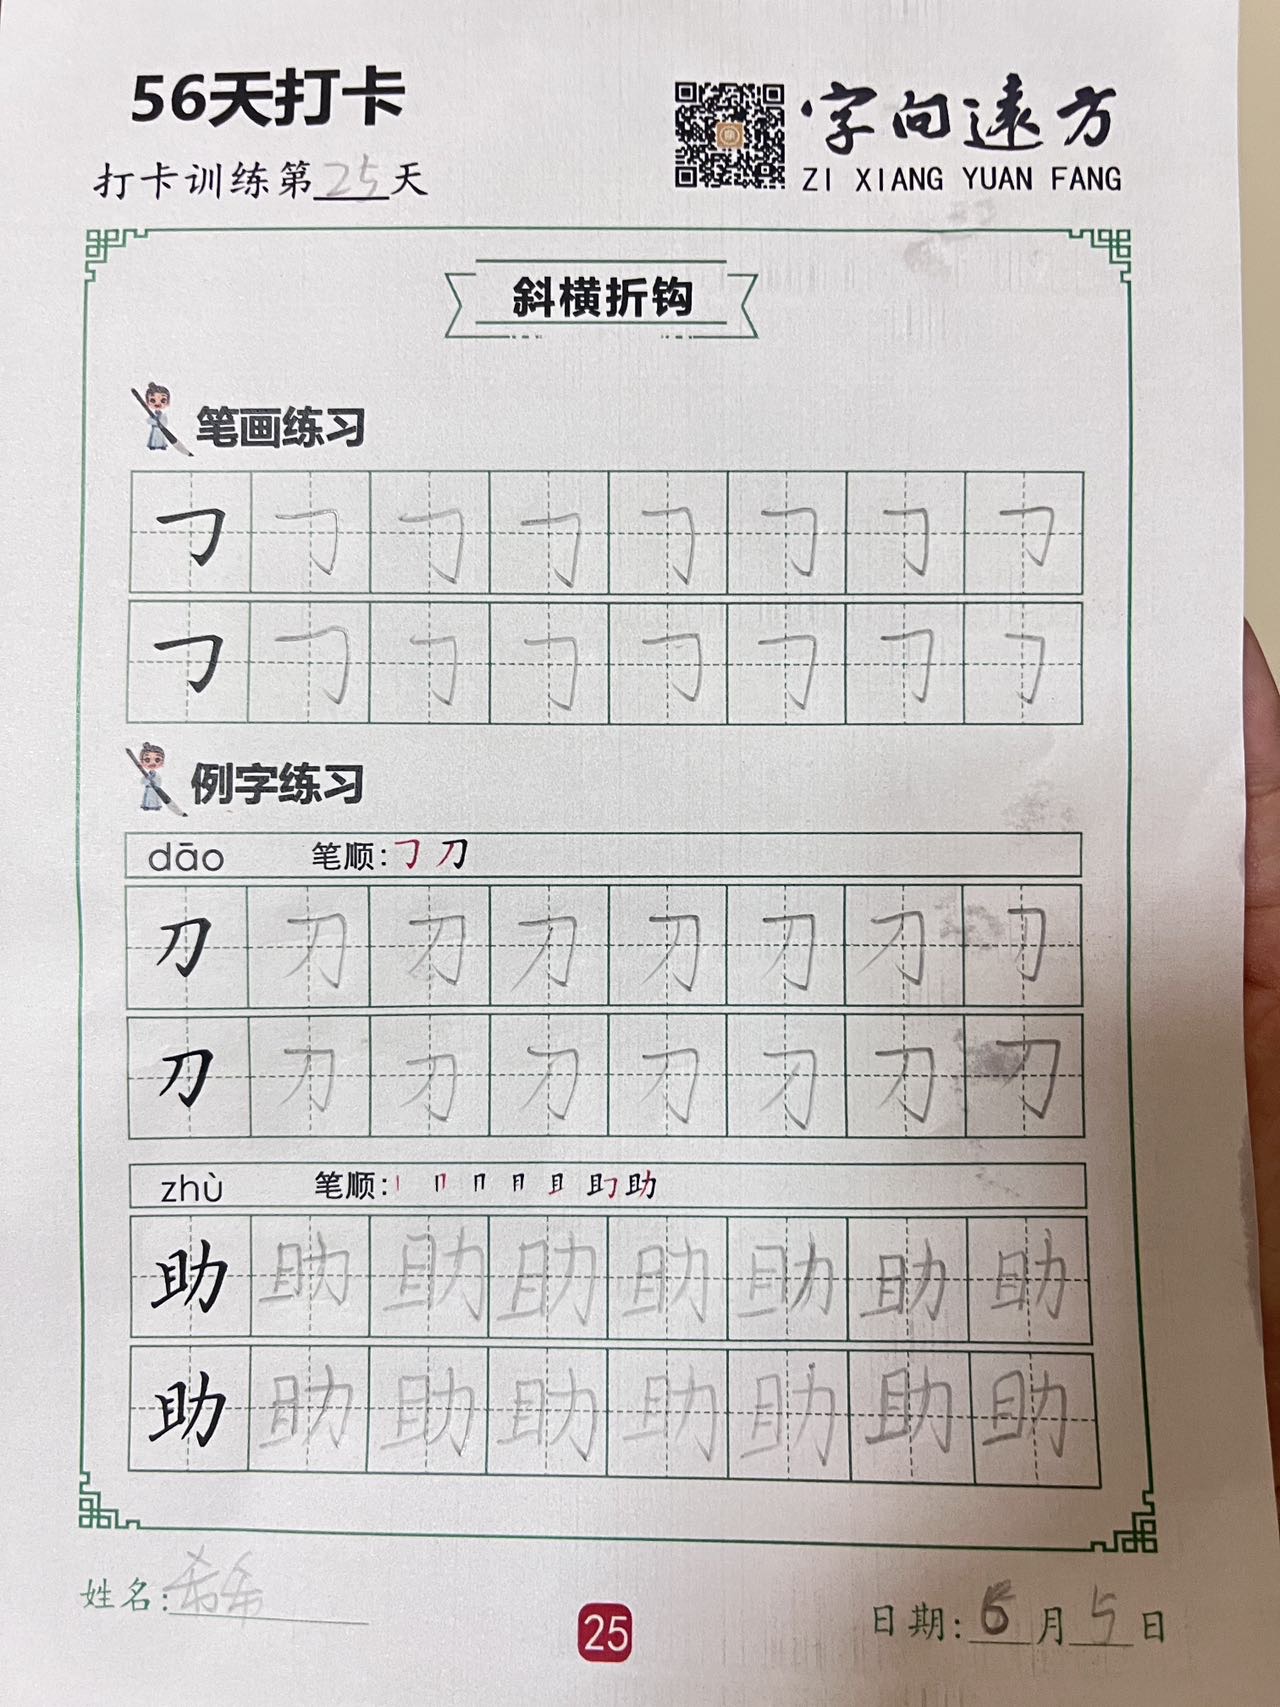 56天打卡
字向远方
打卡训练第25天
ZI XIANG YUAN FANG
斜横折钩
笔画练习
㇆ ㇆ ㇆ ㇆ ㇆ ㇆ ㇆ ㇆
㇆ ㇆ ㇆ ㇆ ㇆ ㇆ ㇆ ㇆
例字练习
dāo 笔顺:㇆ 刀
刀 刀 刀 刀 刀 刀 刀 刀
刀 刀 刀 刀 刀 刀 刀 刀
zhù 笔顺:丨 冂 冂 月 且 助
助 助 助 助 助 助 助 助
助 助 助 助 助 助 助 助
姓名:希希
25
日期:6月5日